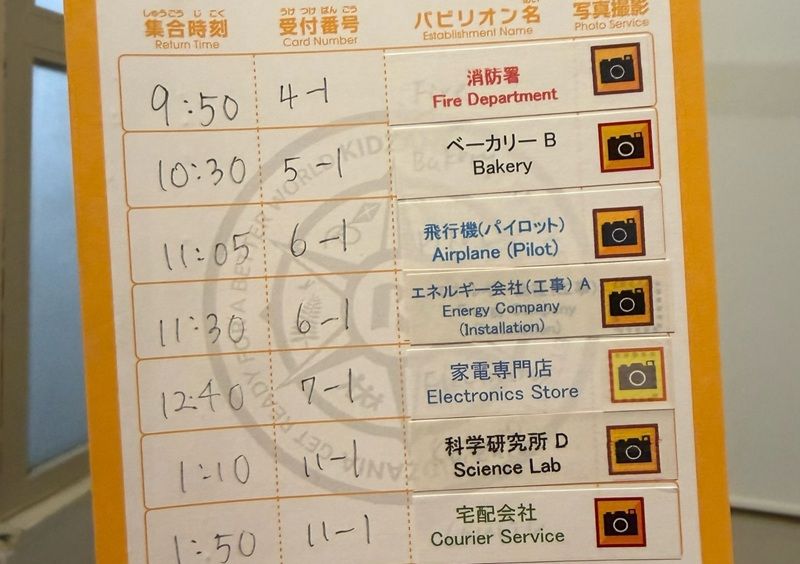 しゅうごう じ こく うけ つけ ばん ごう
集合時刻 受付番号 パビリオン名 写真撮影
Return Time Card Number Establishment Name Photo Service
9:50 4-1 消防署
Fire Department
10:30 5-1 ベーカリー B
Bakery
11:05 6-1 飛行機(パイロット)
Airplane (Pilot)
11:30 6-1 エネルギー会社(工事) A
Energy Company
(Installation)
12:40 7-1 家電専門店
Electronics Store
1:10 11-1 科学研究所 D
Science Lab
1:50 11-1 宅配会社
Courier Service
GET READY FOR A BETTER WORLD